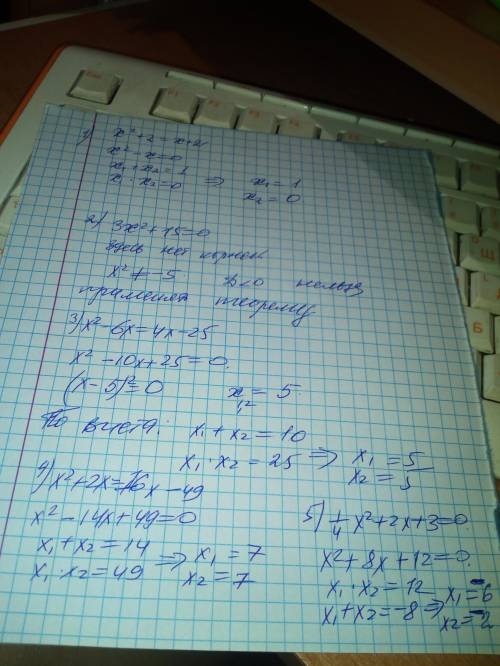 1) x² + 2 = x + 2
x² - x = 0
x₁ + x₂ = 1
x₁ · x₂ = 0 ⇒ x₁ = 1
x₂ = 0
2) 3x² + 15 = 0
здесь нет корней
x² ≠ -5 D<0 нельзя
применять теорему
3) x² - 6x = 4x - 25
x² - 10x + 25 = 0.
(x - 5)² = 0 x₁,₂ = 5.
По виета: x₁ + x₂ = 10
x₁ · x₂ = 25 ⇒ x₁ = 5
x₂ = 5
4) x² + 2x = 16x - 49
x² - 14x + 49 = 0
x₁ + x₂ = 14
x₁ · x₂ = 49 ⇒ x₁ = 7
x₂ = 7
5) 1/4 x² + 2x + 3 = 0.
x² + 8x + 12 = 0.
x₁ · x₂ = 12
x₁ + x₂ = -8 ⇒ x₁ = -6
x₂ = -2